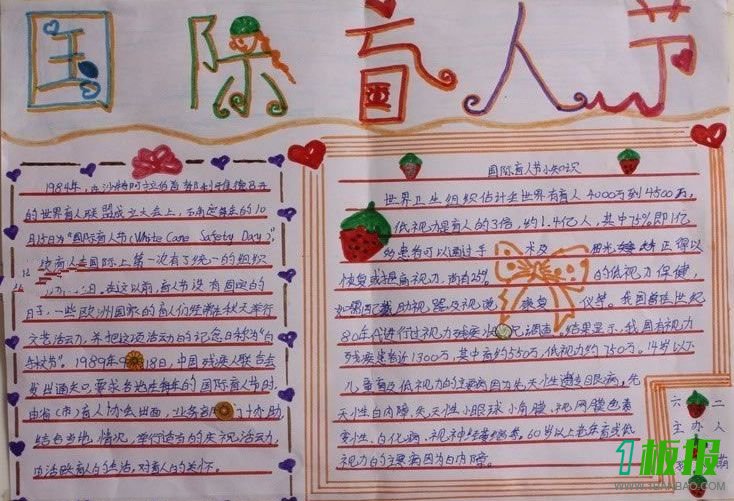 国际盲人节
1984年，在沙特阿拉伯首都利雅德召开
的世界盲人联盟成立大会上，确定每年的10
月15日为"国际盲人节(White Cane Safety Day)"，
盲人在国际上第一次有了统一的组织
在这以前，盲人节没有固定的
日子，一些欧洲国家的盲人们经常在秋天举行
文艺活动，并把这项活动的记念日称为"白
1989年9 18日，中国残疾人联合会
发出通知，要求各地在每年的国际盲人节时，
由省（市）盲人协会出面， 协助，
结合当地 情况，举行适当的庆祝活动，
盲人的生活，对盲人的关怀。
国际盲人节小知识
世界卫生组织估计全世界有盲人4000万到4500万，
低视力是盲人的3倍，约1.4亿人，其中75%即1亿
的患者可以通过手 术及 得以
恢复或提高视力，尚有25% 的低视力保健，
如果匹配助视器及视觉 康复 仪等。我国曾在 世纪
80年代进行过视力残疾 调查，结果显示，我国有视力
残疾患者近1300万，其中盲约550万，低视力约750万。14岁以下
儿童盲及低视力的主要病因为先天性遗传眼病，先
天性白内障，先天性小眼球小角膜，视网膜色素
变性，白化病，视神经萎缩等。60岁以上老年盲或低
视力的主要病因为白内障。
六 二
主办人
萌
1板报
WWW.1BANBAO.COM